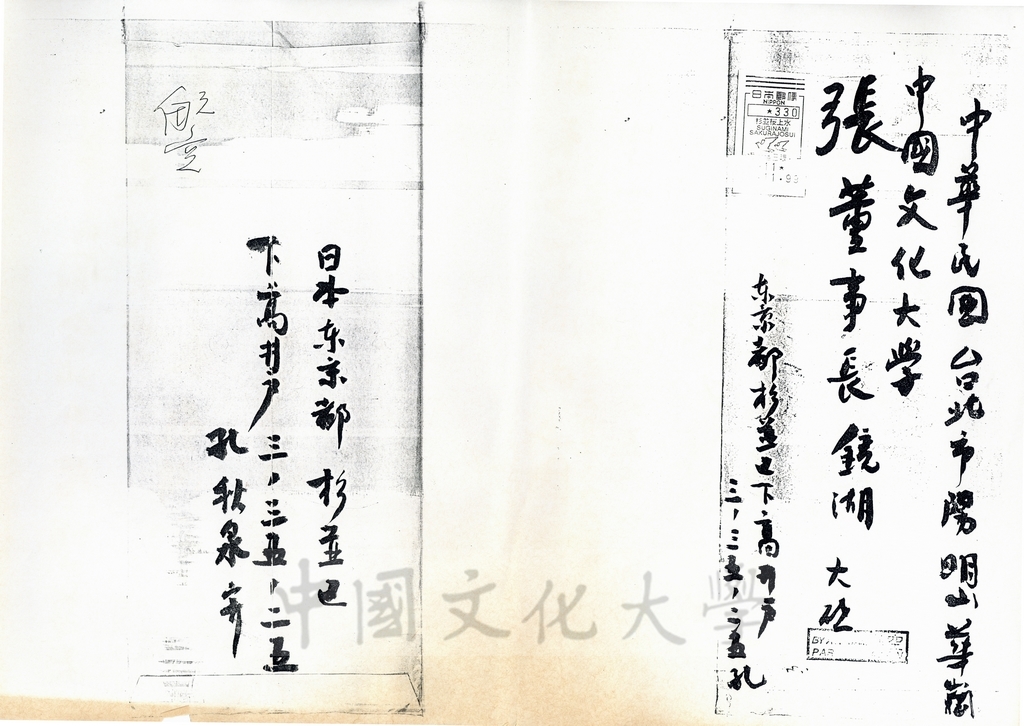 中華民国台北市陽明山華崗
中國文化大学
張董事長鏡湖 大啟
日本郵便
NIPPON
*330
杉並桜上水
SUGINAMI
SAKURAJOSUI
东京都杉並区下高井戸
三，三五，二五孔
PAR
日本东京都 杉並区
下高井戸三，三五，二五
孔秋泉寄
中國文化大學